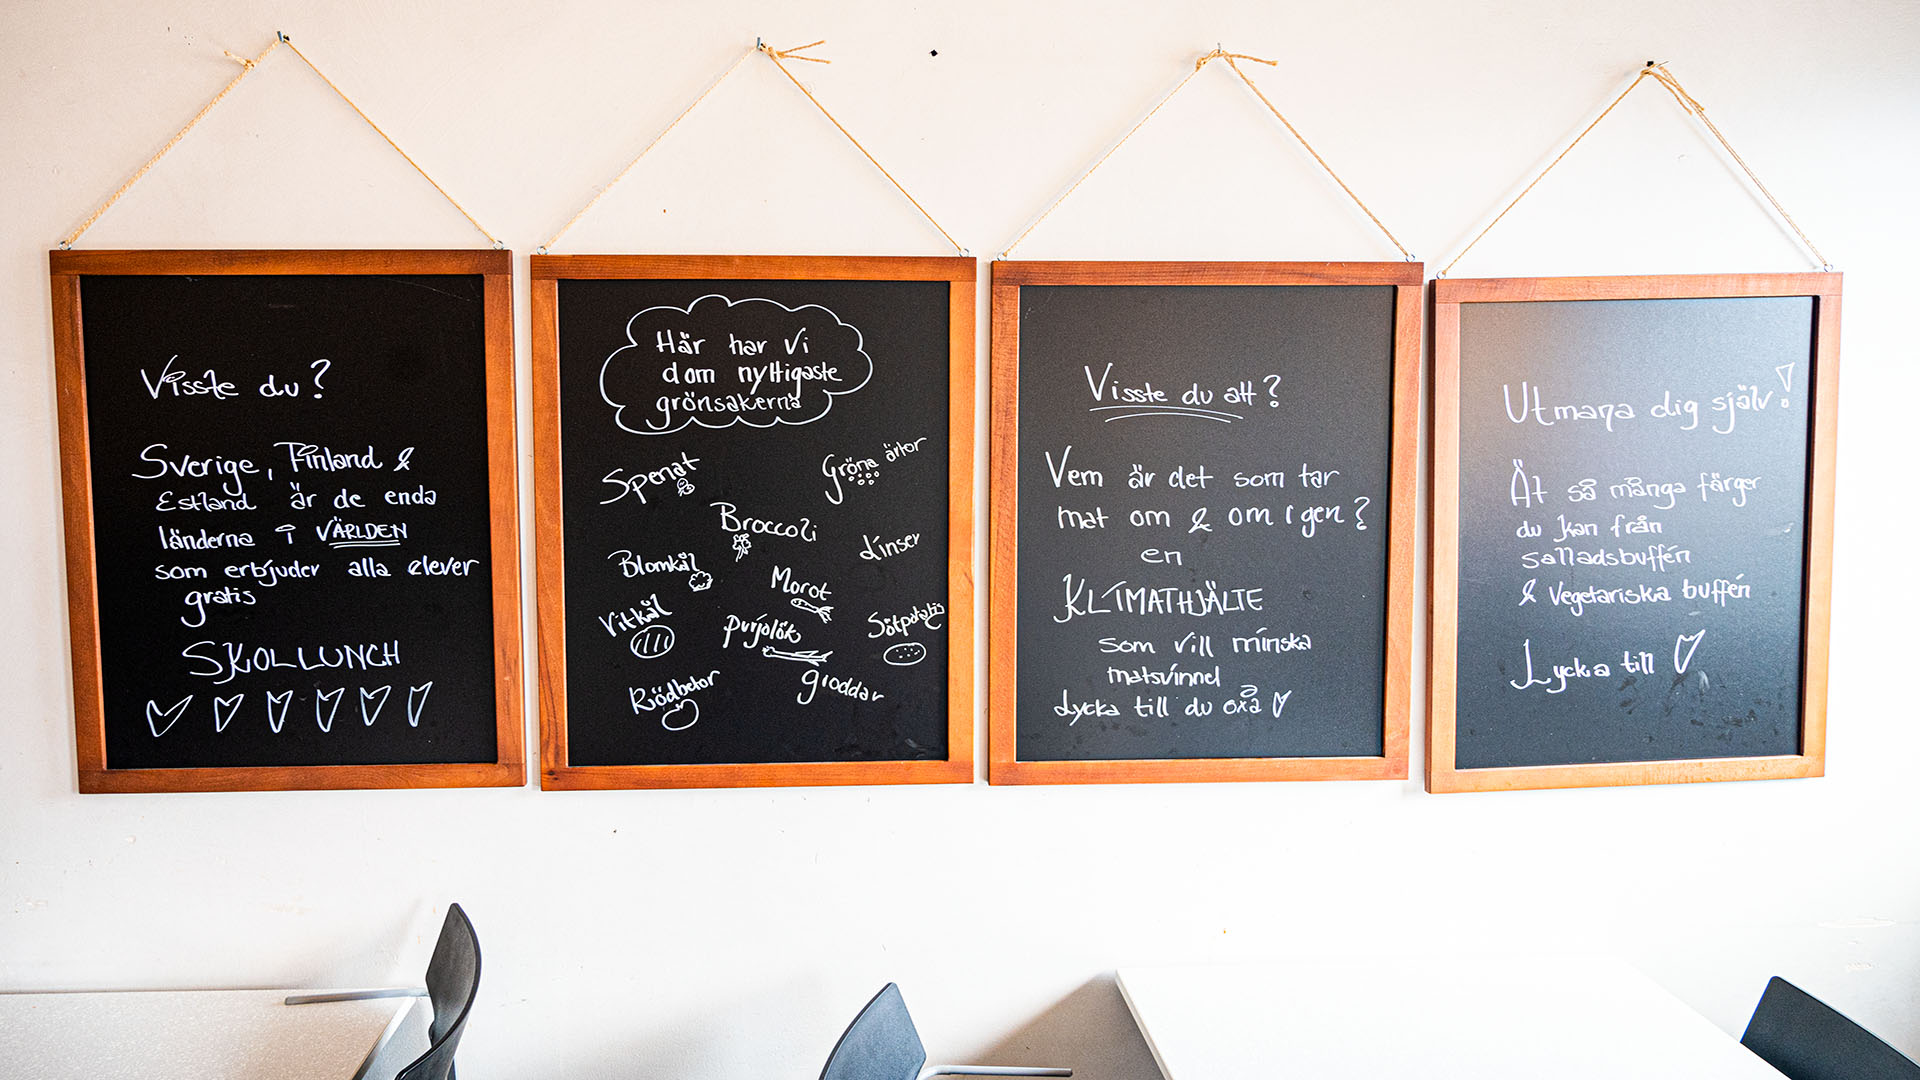 Visste du?
Sverige, Finland &
Estland är de enda
länderna i VÄRLDEN
som erbjuder alla elever
gratis
SKOLLUNCH
Här har vi
dom nyttigaste
grönsakerna
Spenat
Gröna ärtor
Broccoli
Linser
Blomkål
Morot
Vitkål
Purjolök
Sötpotatis
Rödbetor
groddar
Visste du att?
Vem är det som tar
mat om & om igen?
en
KLIMATHJÄLTE
som vill minska
matsvinnet
Lycka till du oxå
Utmana dig själv!
Ät så många färger
du kan från
salladsbuffén
& Vegetariska buffén
Lycka till